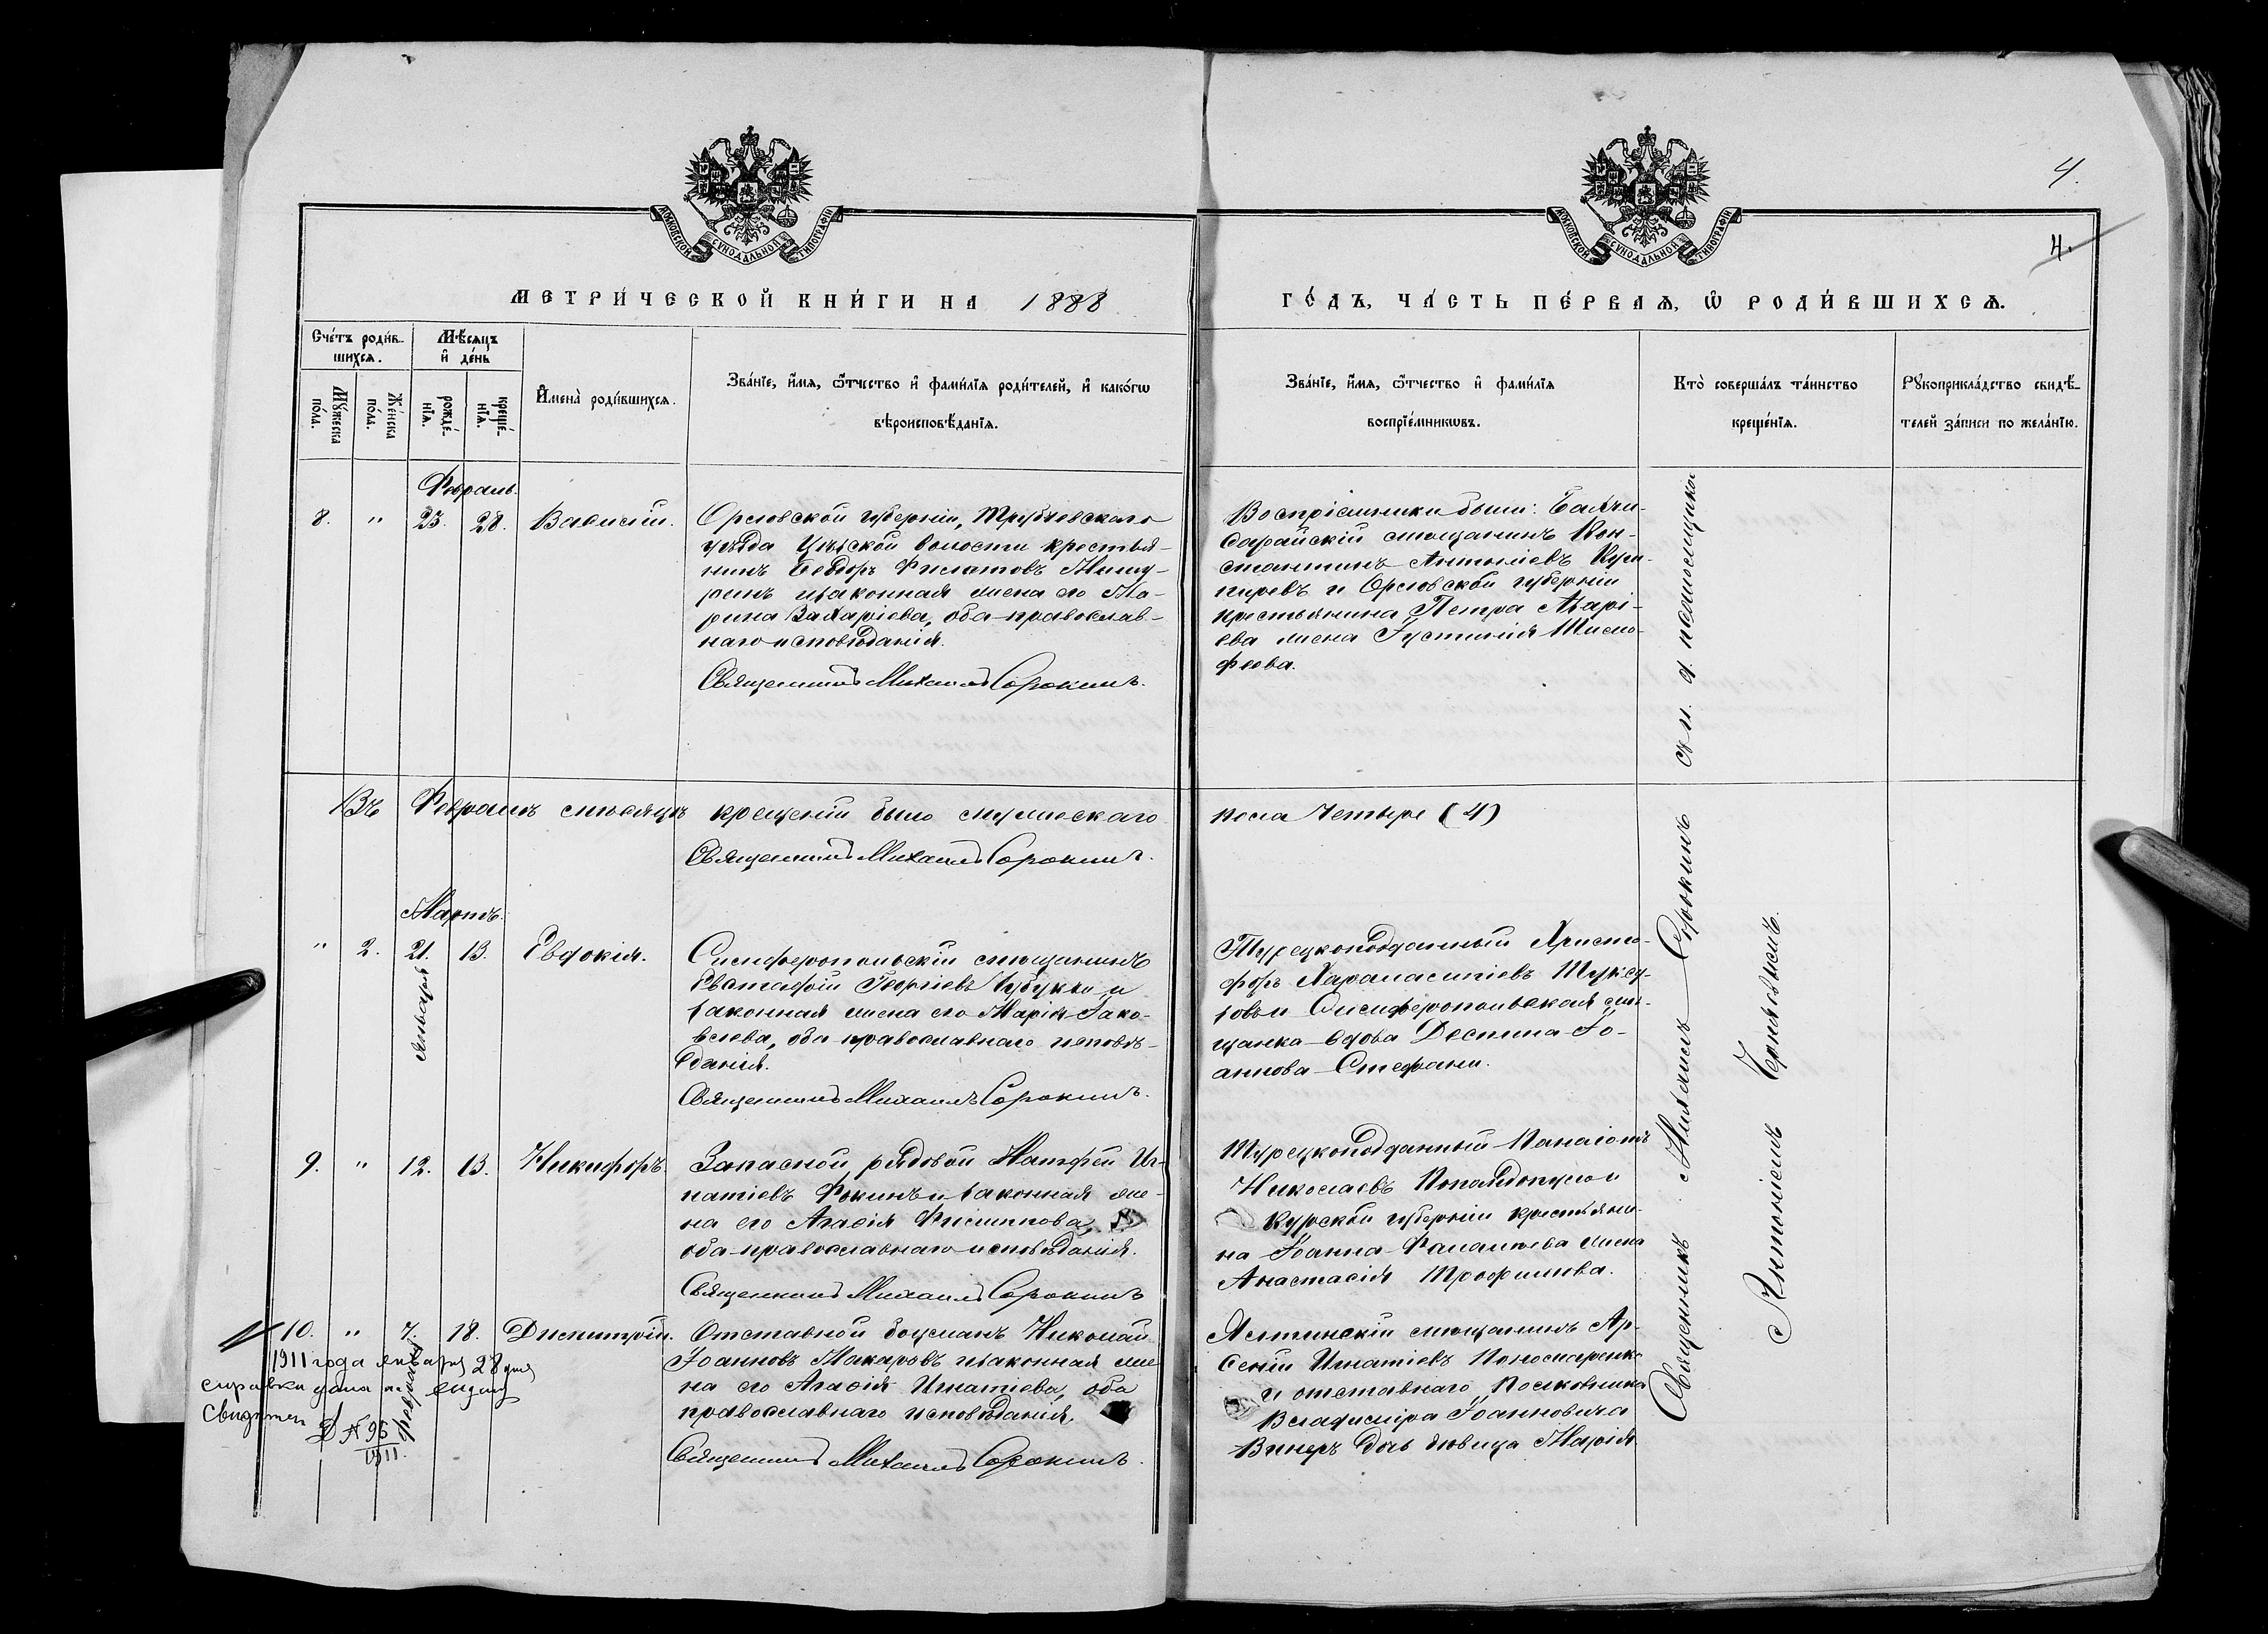 МОСКОВСКОЙ СѴНОДАЛЬНОЙ ТИПОГРАФІИ
МОСКОВСКОЙ СѴНОДАЛЬНОЙ ТИПОГРАФІИ
4.
4.
МЕТРИ́ЧЕСКОЙ КНИ́ГИ НА 1888
ГО́ДЪ, ЧА́СТЬ ПЕ́РВАѦ, Ѿ РОДИ́ВШИХСѦ.
Сче́тъ роди́в-
шихсѧ.
Мѣ́сяцъ
и҆ де́нь
Мꙋ́жеска
по́ла.
Же́нска
по́ла.
рожде́-
нїѧ.
креще́-
нїѧ.
И҆мена̀ роди́вшихсѧ.
Зва́нїе, и҆́мѧ, ѻ҆́тчество и҆ фами́лїѧ роди́телей, и҆ како́гѡ
вѣроисповѣ́данїѧ.
Зва́нїе, и҆́мѧ, ѻ҆́тчество и҆ фами́лїѧ
воспрїе́мникѡвъ.
Кто̀ соверша́лъ та́инство
креще́нїѧ.
Рꙋкоприкла́дство свидѣ́-
телей за́писи по жела́нїю.
Февраль.
8. " 23. 28. Василій.
Орловской губерніи, Трубчевскаго
уѣзда волости крестья-
нинъ Ѳеодоръ Филатовъ
и законная жена его Ма-
рина Захаріева, оба православ-
наго исповѣданія.
Священникъ Михаилъ Сорокинъ.
Воспріемники были: Бахчи-
сарайскій мѣщанинъ Кон-
стантинъ Антоніевъ
и Орловской губерніи
крестьянина Петра
жена Іустинія Тимо-
феева.
Въ Февралѣ мѣсяцѣ крещеній было мужескаго
пола четыре (4)
Священникъ Михаилъ Сорокинъ.
Мартъ.
" 2. 21. 13. Евдокія.
Января
Симферопольскій мѣщанинъ
Евстафій Георгіевъ и
законная жена его Марія Іако-
влева, оба православнаго исповѣ-
данія.
Священникъ Михаилъ Сорокинъ.
Турецкоподданный Христо-
форъ Харалампіевъ
и Симферопольская мѣ-
щанка вдова Деспина Іо-
аннова Стефани.
9. " 12. 13. Никифоръ.
Запасной рядовой Матфей Иг-
натіевъ Фокинъ и законная же-
на его Агафія Филиппова,
оба православнаго исповѣданія.
Священникъ Михаилъ Сорокинъ
Турецкоподданный Панаіотъ
Николаевъ и
Курской губерніи крестьяни-
на Іоанна жена
Анастасія Трофимова.
10. " 7. 18. Димитрій.
февраля
Отставной боцманъ Николай
Іоанновъ Макаровъ и законная же-
на его Агафія Игнатіева, оба
православнаго исповѣданія,
Священникъ Михаилъ Сорокинъ.
Ялтинскій мѣщанинъ Ар-
сеній Игнатіевъ Пономаренко
и отставнаго Полковника
Владиміра Іоанновича
Винеръ дочь дѣвица Марія.
1911 года января 28 дня
справка дана на
№ 96
1911.
Священникъ Михаилъ Сорокинъ съ и. д. псаломщика